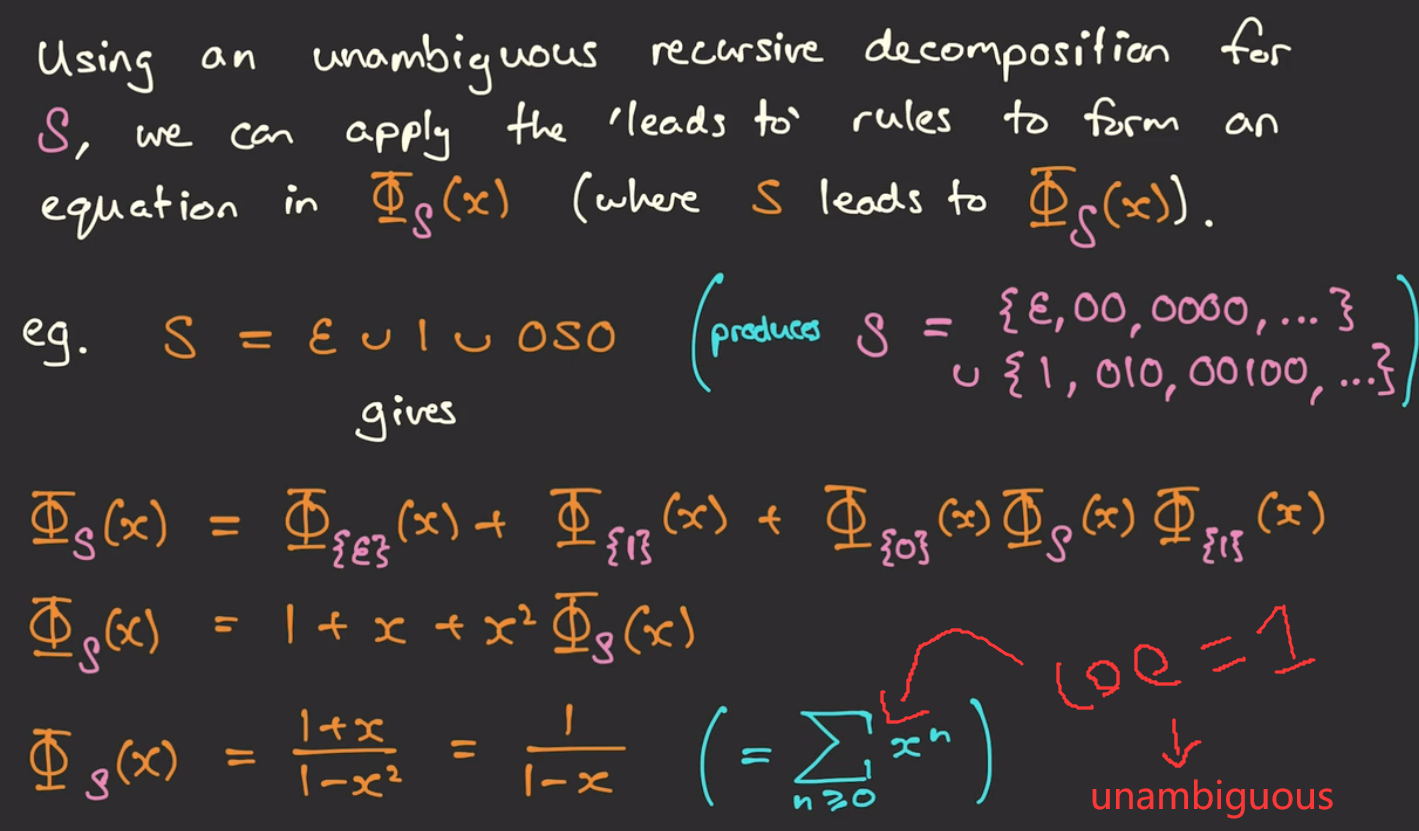 Using an unambiguous recursive decomposition for
S, we can apply the 'leads to' rules to form an
equation in Φ_S(x) (where S leads to Φ_S(x)).
eg. S = ε ∪ 1 ∪ 0S0 (produces S = {ε, 00, 0000, ...}
∪ {1, 010, 00100, ...})
gives
Φ_S(x) = Φ_{ε}(x) + Φ_{1}(x) + Φ_{0}(x) Φ_S(x) Φ_{1}(x)
Φ_S(x) = 1 + x + x² Φ_S(x)
coe = 1
Φ_S(x) = (1+x)/(1-x²) = 1/(1-x) (= Σ_{n≥0} xⁿ)
unambiguous